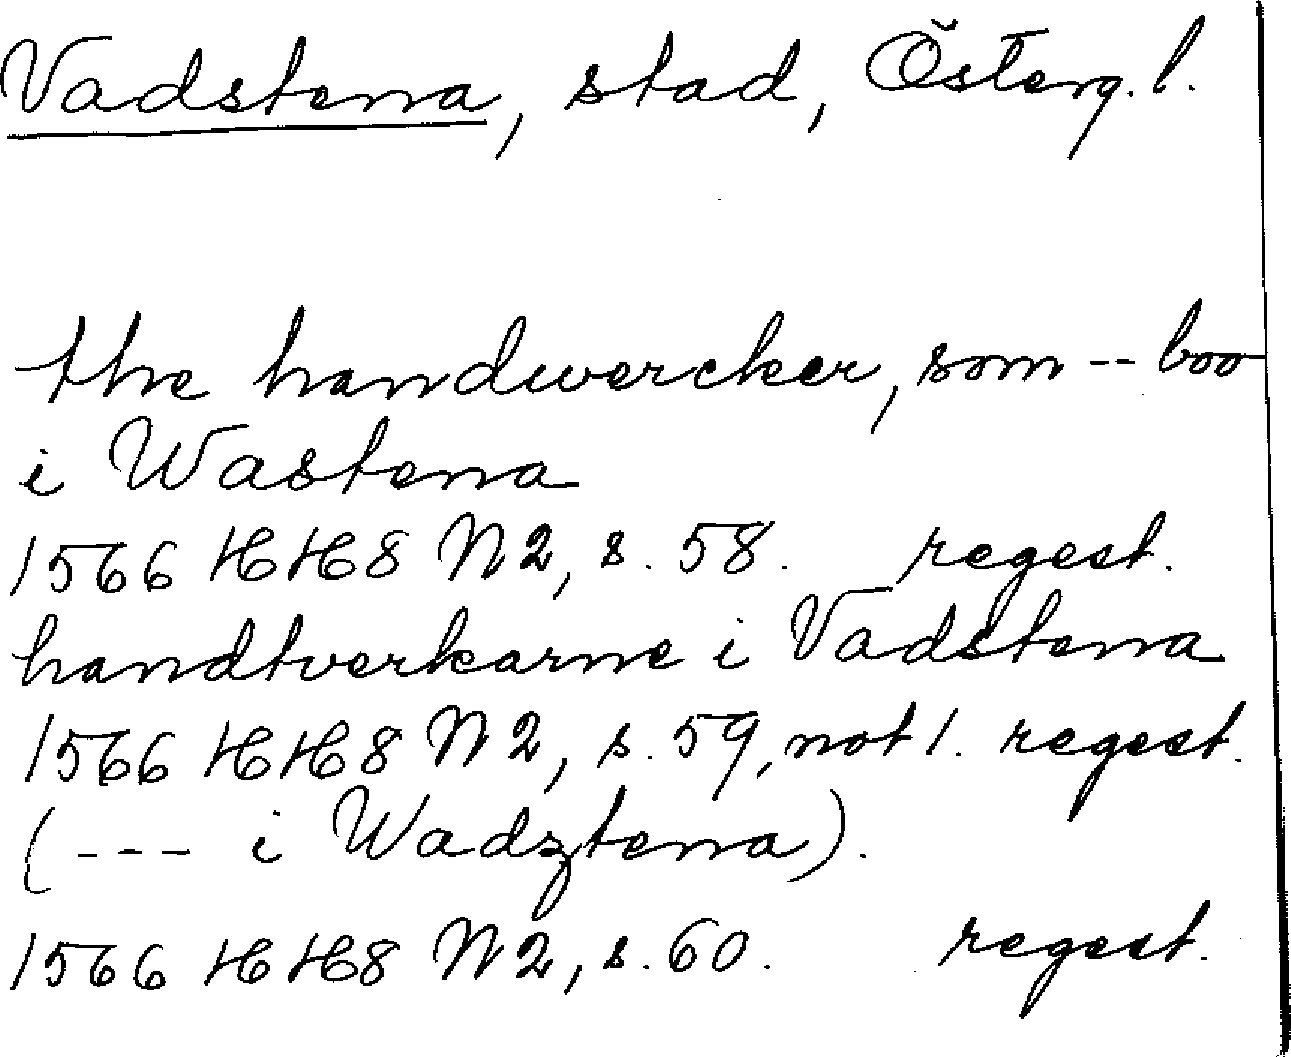 Vadstena, stad, Österg. l.
the handwercker, som -- boo
i Wastena
1566 HH8 N2, s. 58. regest.
handtverkarne i Vadstena
1566 HH8 N2, s. 59, not 1. regest.
(--- i Wadztena).
1566 HH8 N2, s. 60. regest.